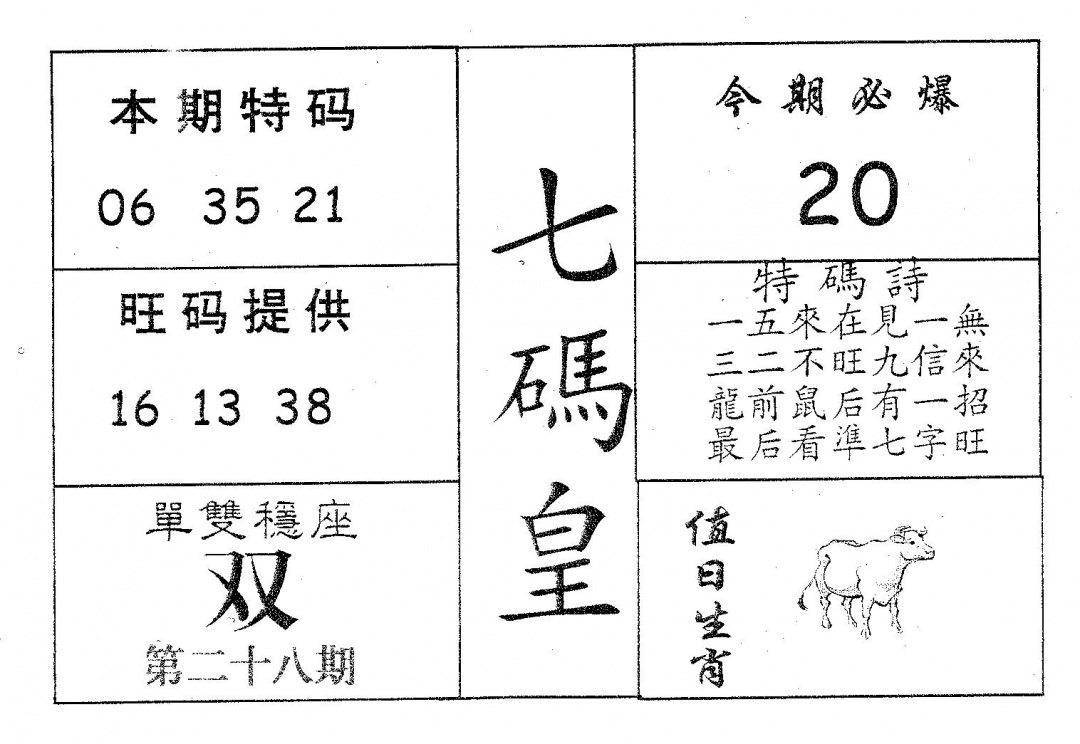 本期特码
06 35 21
旺码提供
16 13 38
單雙穩座
双
第二十八期
七碼皇
今期必爆
20
特碼詩
一五來在見一無
三二不旺九信來
龍前鼠后有一招
最后看準七字旺
值日生肖